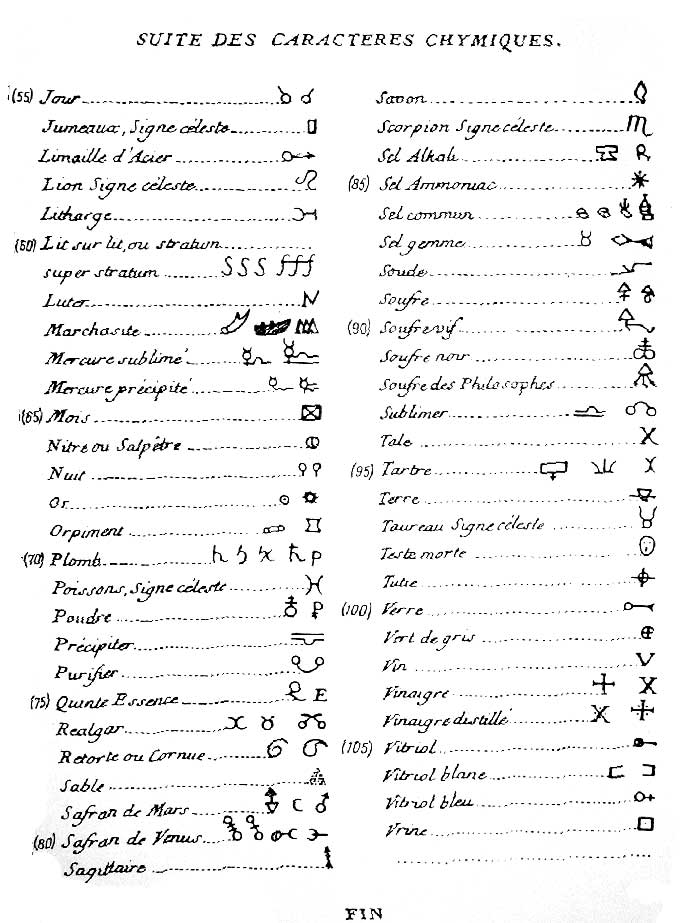 SUITE DES CARACTERES CHYMIQUES.
(55) Jour
Jumeaux, Signe céleste
Limaille d'Acier
Lion Signe céleste
Litharge
(60) Lit sur lit, ou stratum
super stratum SSS fff
Luter
Marchasite
Mercure sublimé
Mercure précipité
(65) Mois
Nitre ou Salpêtre
Nuit
Or
Orpiment
(70) Plomb
Poissons, Signe céleste
Poudre
Précipiter
Purifier
(75) Quinte Essence E
Realgar
Retorte ou Cornue
Sable
Safran de Mars
(80) Safran de Venus
Sagittaire
Savon
Scorpion Signe céleste
Sel Alkali
(85) Sel Ammoniac
Sel commun
Sel gemme
Soude
Soufre
(90) Soufre vif
Soufre noir
Soufre des Philosophes
Sublimer
Talc
(95) Tartre
Terre
Taureau Signe céleste
Teste morte
Tutie
(100) Verre
Vert de gris
Vin
Vinaigre
Vinaigre distillé
(105) Vitriol
Vitriol blanc
Vitriol bleu
Vrine
FIN